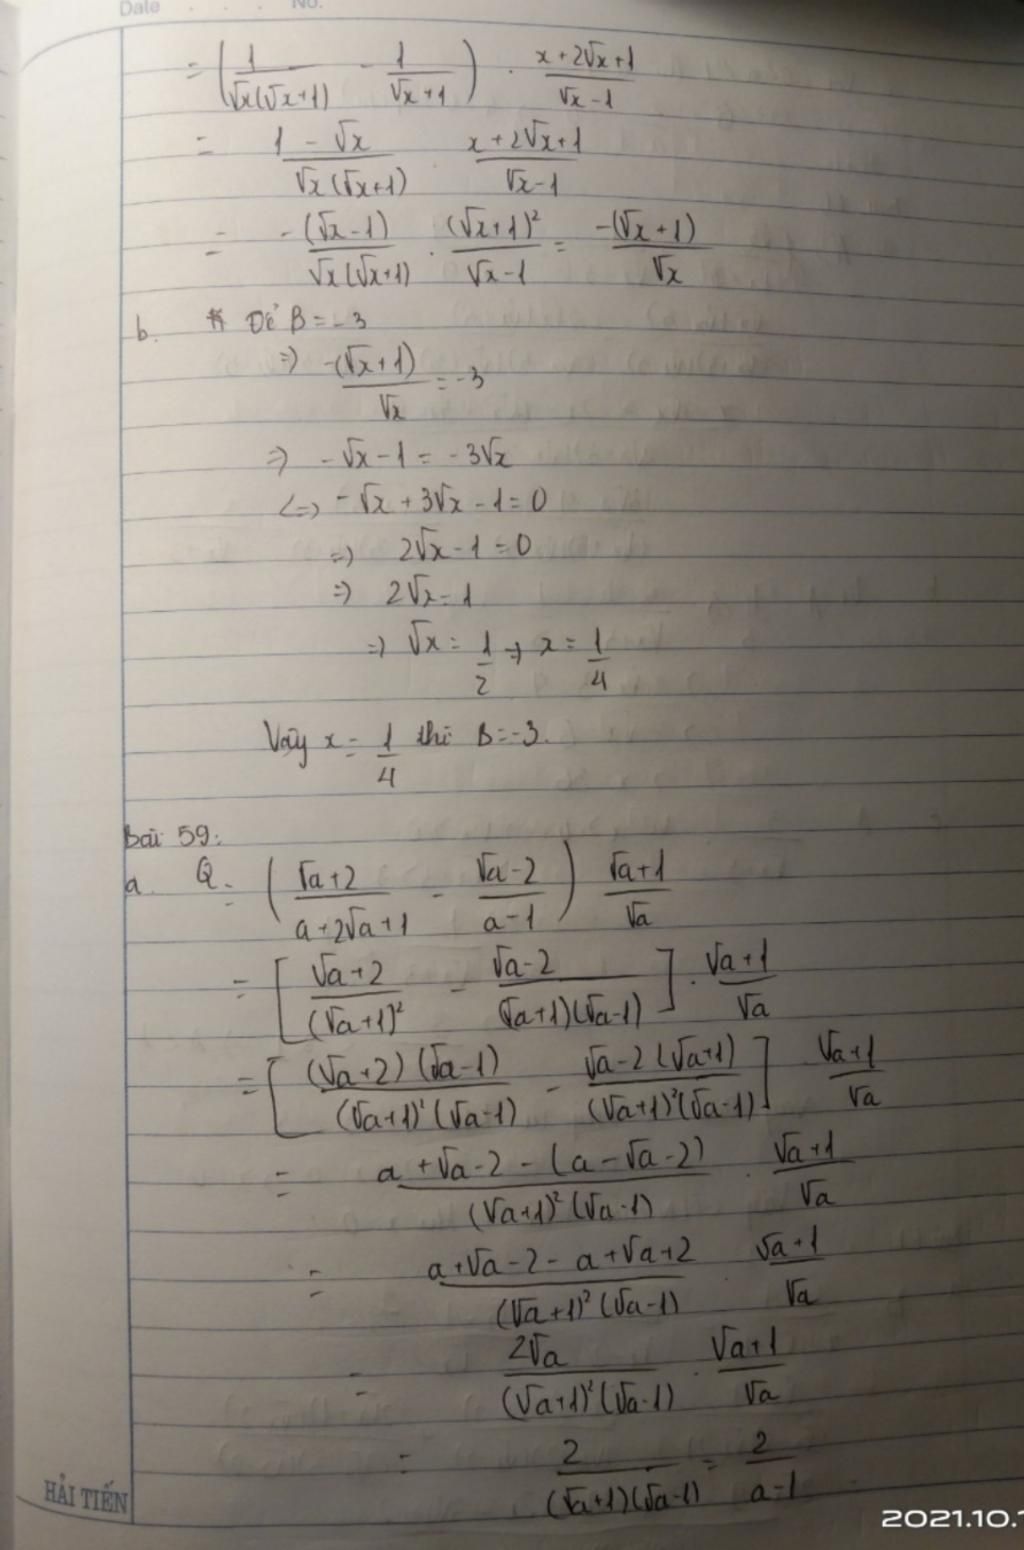 Date . . . No.
= (1/(√x(√x+1)) - 1/(√x+1)) . (x+2√x+1)/(√x-1)
= (1-√x)/(√x(√x+1)) (x+2√x+1)/(√x-1)
= -(√x-1)/(√x(√x+1)) . (√x+1)²/(√x-1) = -(√x+1)/√x
b. * Để B=-3
=> -(√x+1)/√x = -3
=> -√x-1 = -3√x
<=> -√x+3√x-1=0
=> 2√x-1=0
=> 2√x=1
=> √x = 1/2 => x = 1/4
Vậy x = 1/4 thì B=-3.
Bài 59:
a. Q = ((√a+2)/(a+2√a+1) - (√a-2)/(a-1)) (√a+1)/√a
= [(√a+2)/(√a+1)² - (√a-2)/((√a+1)(√a-1))] . (√a+1)/√a
= [(√a+2)(√a-1)/((√a+1)²(√a-1)) - √a-2(√a+1)/((√a+1)²(√a-1))] (√a+1)/√a
= (a+√a-2-(a-√a-2))/((√a+1)²(√a-1)) . (√a+1)/√a
= (a+√a-2-a+√a+2)/((√a+1)²(√a-1)) (√a+1)/√a
= 2√a/((√a+1)²(√a-1)) . (√a+1)/√a
= 2/((√a+1)(√a-1)) = 2/(a-1)
HẢI TIẾN
2021.10.